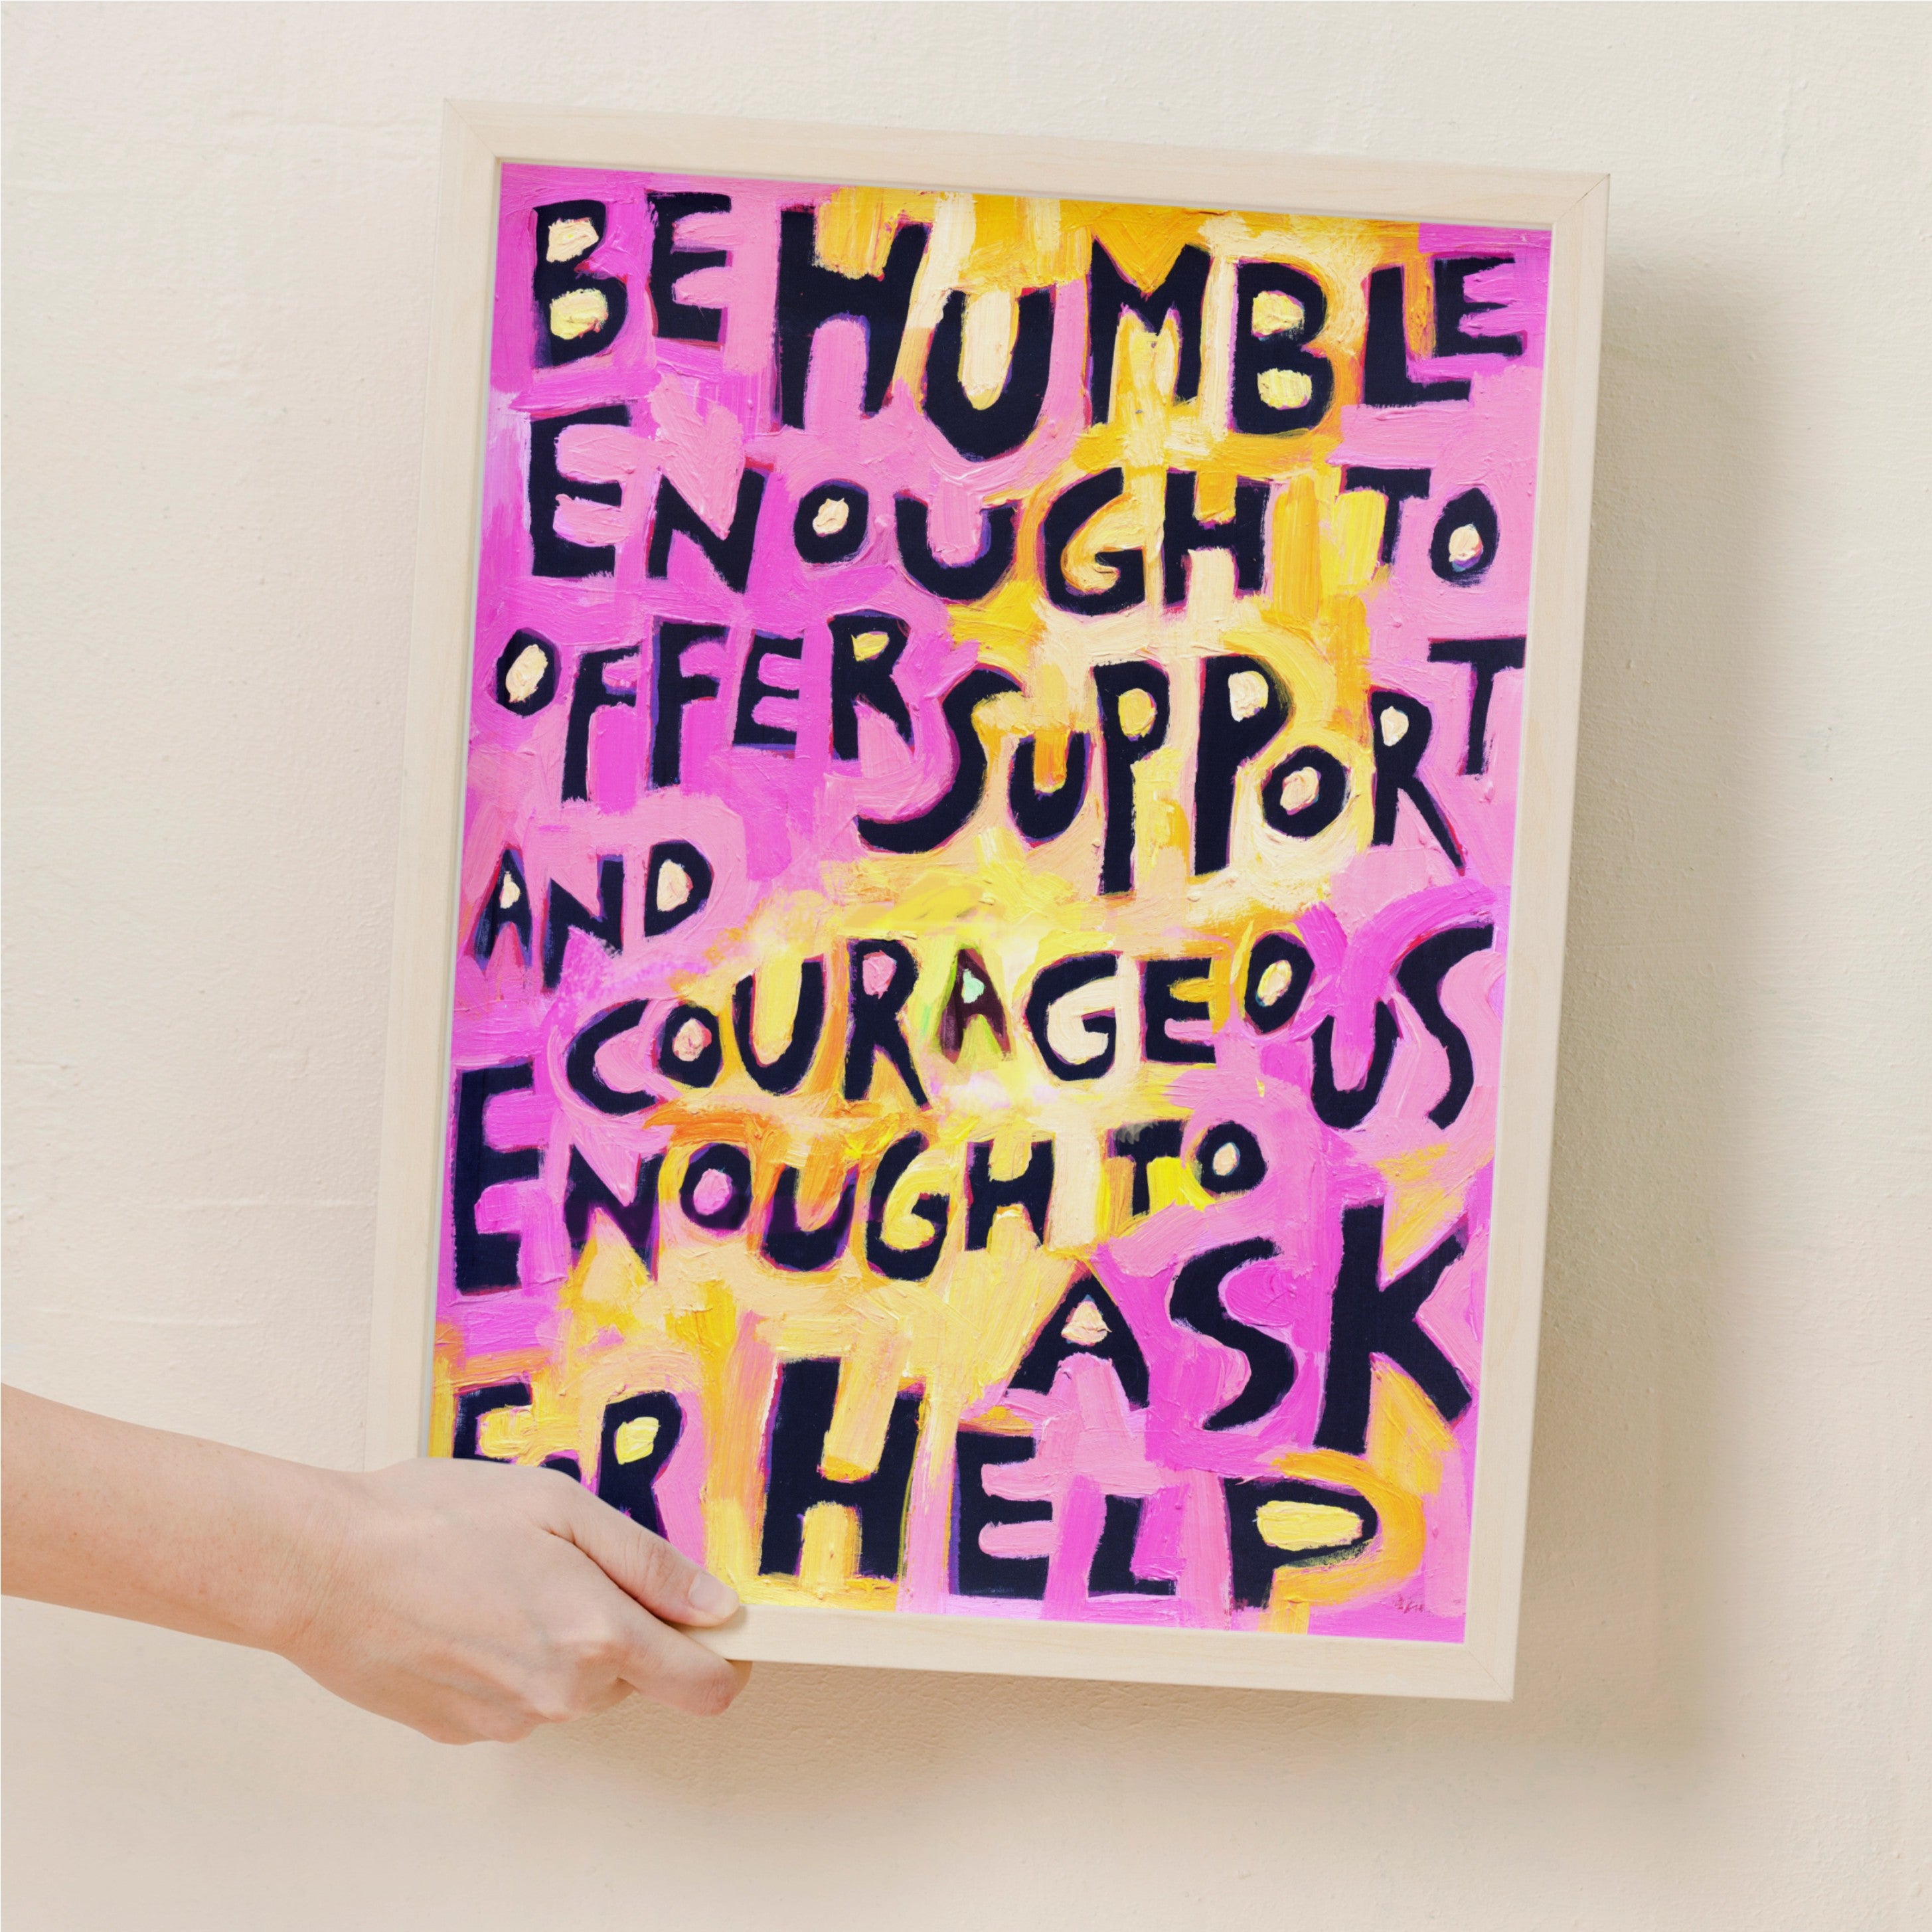 BE HUMBLE
ENOUGH TO
OFFER SUPPORT
AND
COURAGEOUS
ENOUGH TO
ASK
FOR HELP